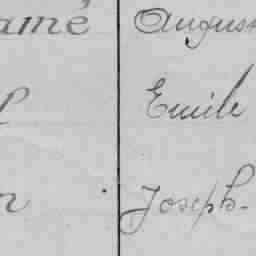 amé August
Emile
Joseph-